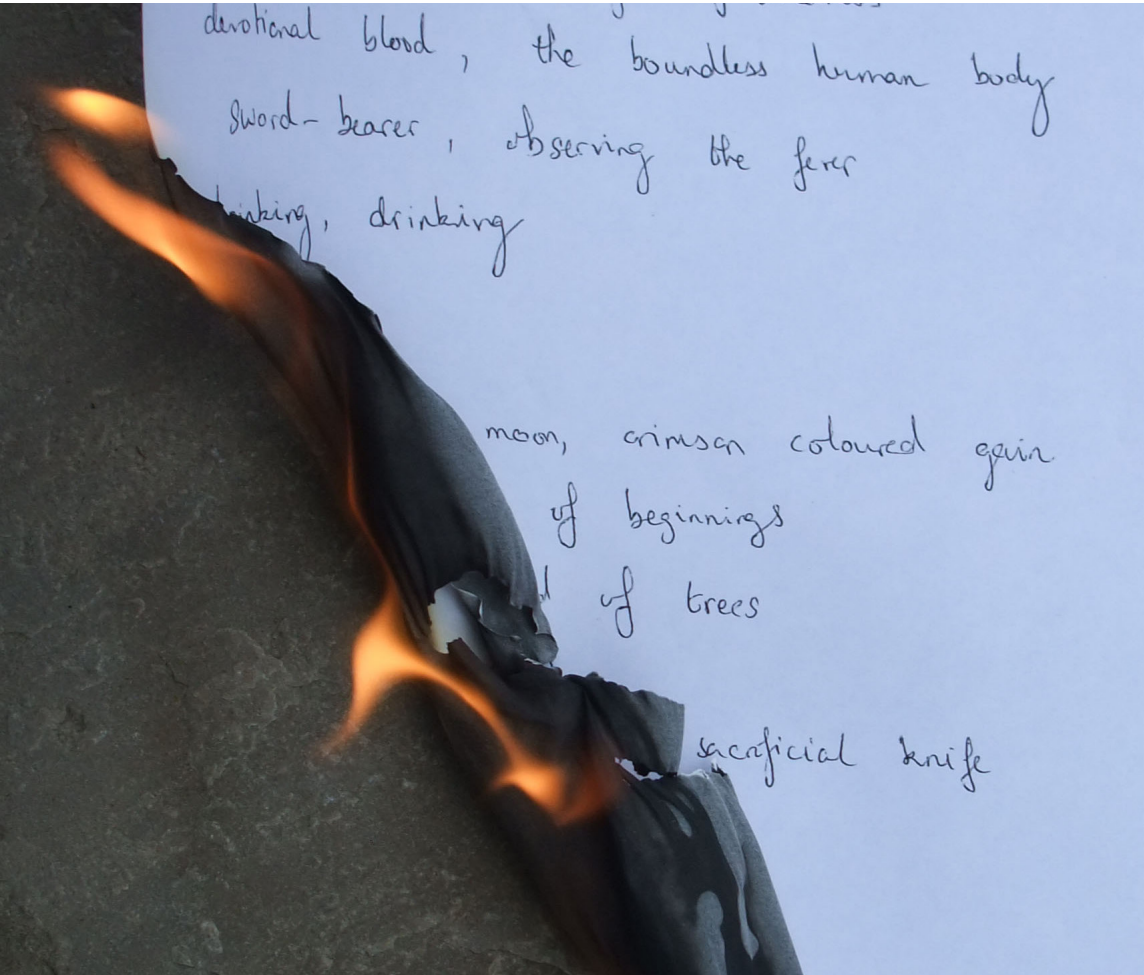 devotional blood, the boundless human body
sword-bearer, observing the fever
drinking
moon, crimson coloured
of beginnings
of trees
sacrificial knife